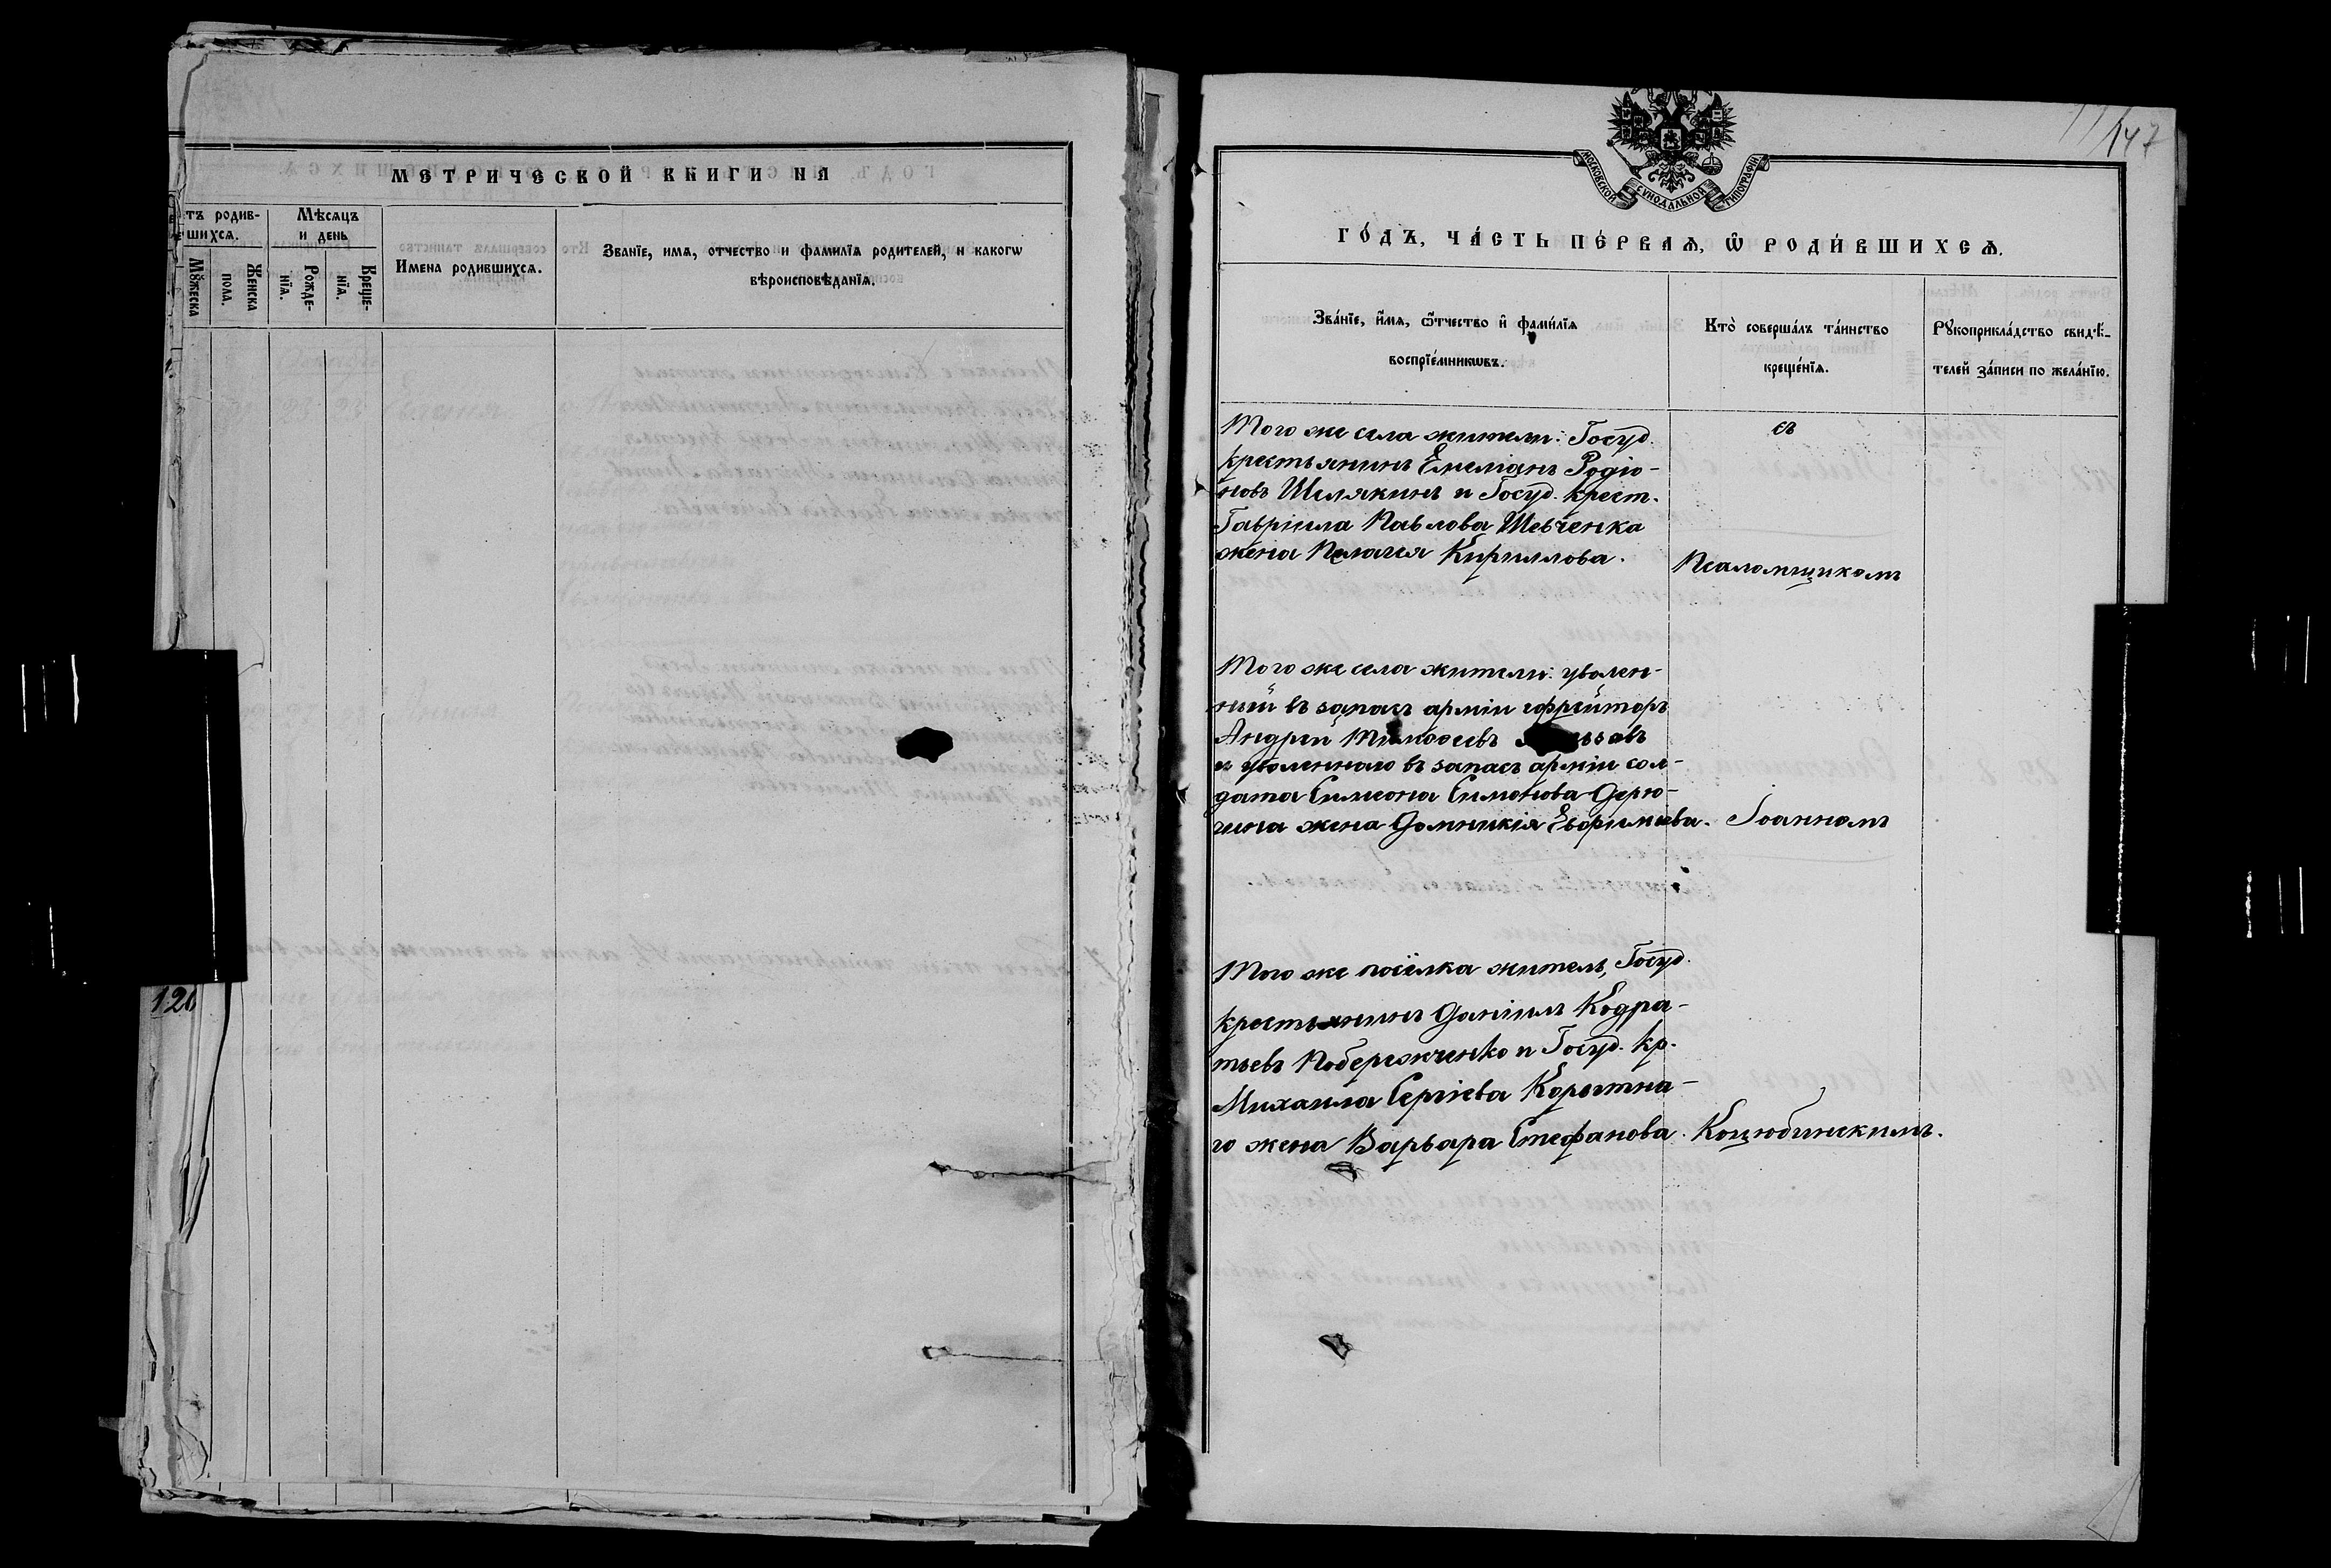 МЕТРИЧЕСКОЙ КНИГИ НА
тъ родив-
шихсѧ.
Мѣсяцъ
и день
Мꙋжеска
Женска
пола.
Рожде-
нїѧ.
Креще-
нїѧ.
Имена родившихсѧ.
Званїе, имѧ, отчество и фамилїѧ родителей, и какогѡ
вѣроисповѣданїѧ.
120
147
МОСКОВСКОЙ СѴНОДАЛЬНОЙ ТИПОГРАФІИ
ГО́ДЪ, ЧА́СТЬ ПЕ́РВАѦ, Ѡ РОДИ́ВШИХСѦ.
Зва́нїе, и҆́мѧ, ѻ҆́тчество и҆ фами́лїѧ
воспрїе́мникѡвъ.
Кто̀ соверша́лъ та́инство
креще́нїѧ.
Рꙋкоприкла́дство свидѣ́-
телей за́писи по жела́нїю.
Того же села жители: Госуд.
крестьянинъ Емеліанъ Родіо-
новъ Шелякинъ и Госуд. крест.
Гавріила Павлова Шевченка
жена Пелагея Кириллова.
съ
Псаломщикомъ
Того же села жители: уволен-
ный въ запасъ арміи ефрейторъ
Андрей Тимофеевъ
и уволеннаго въ запасъ арміи сол-
дата Симеона Симонова Дерю-
гина жена Домникія Евфиміева.
Іоанномъ
Того же посёлка житель, Госуд.
крестьянинъ Даніилъ Кодра-
тьевъ Побережченко и Госуд. кр.
Михаила Сергіева Коротна-
го жена Варвара Стефанова.
Коцюбинскимъ.